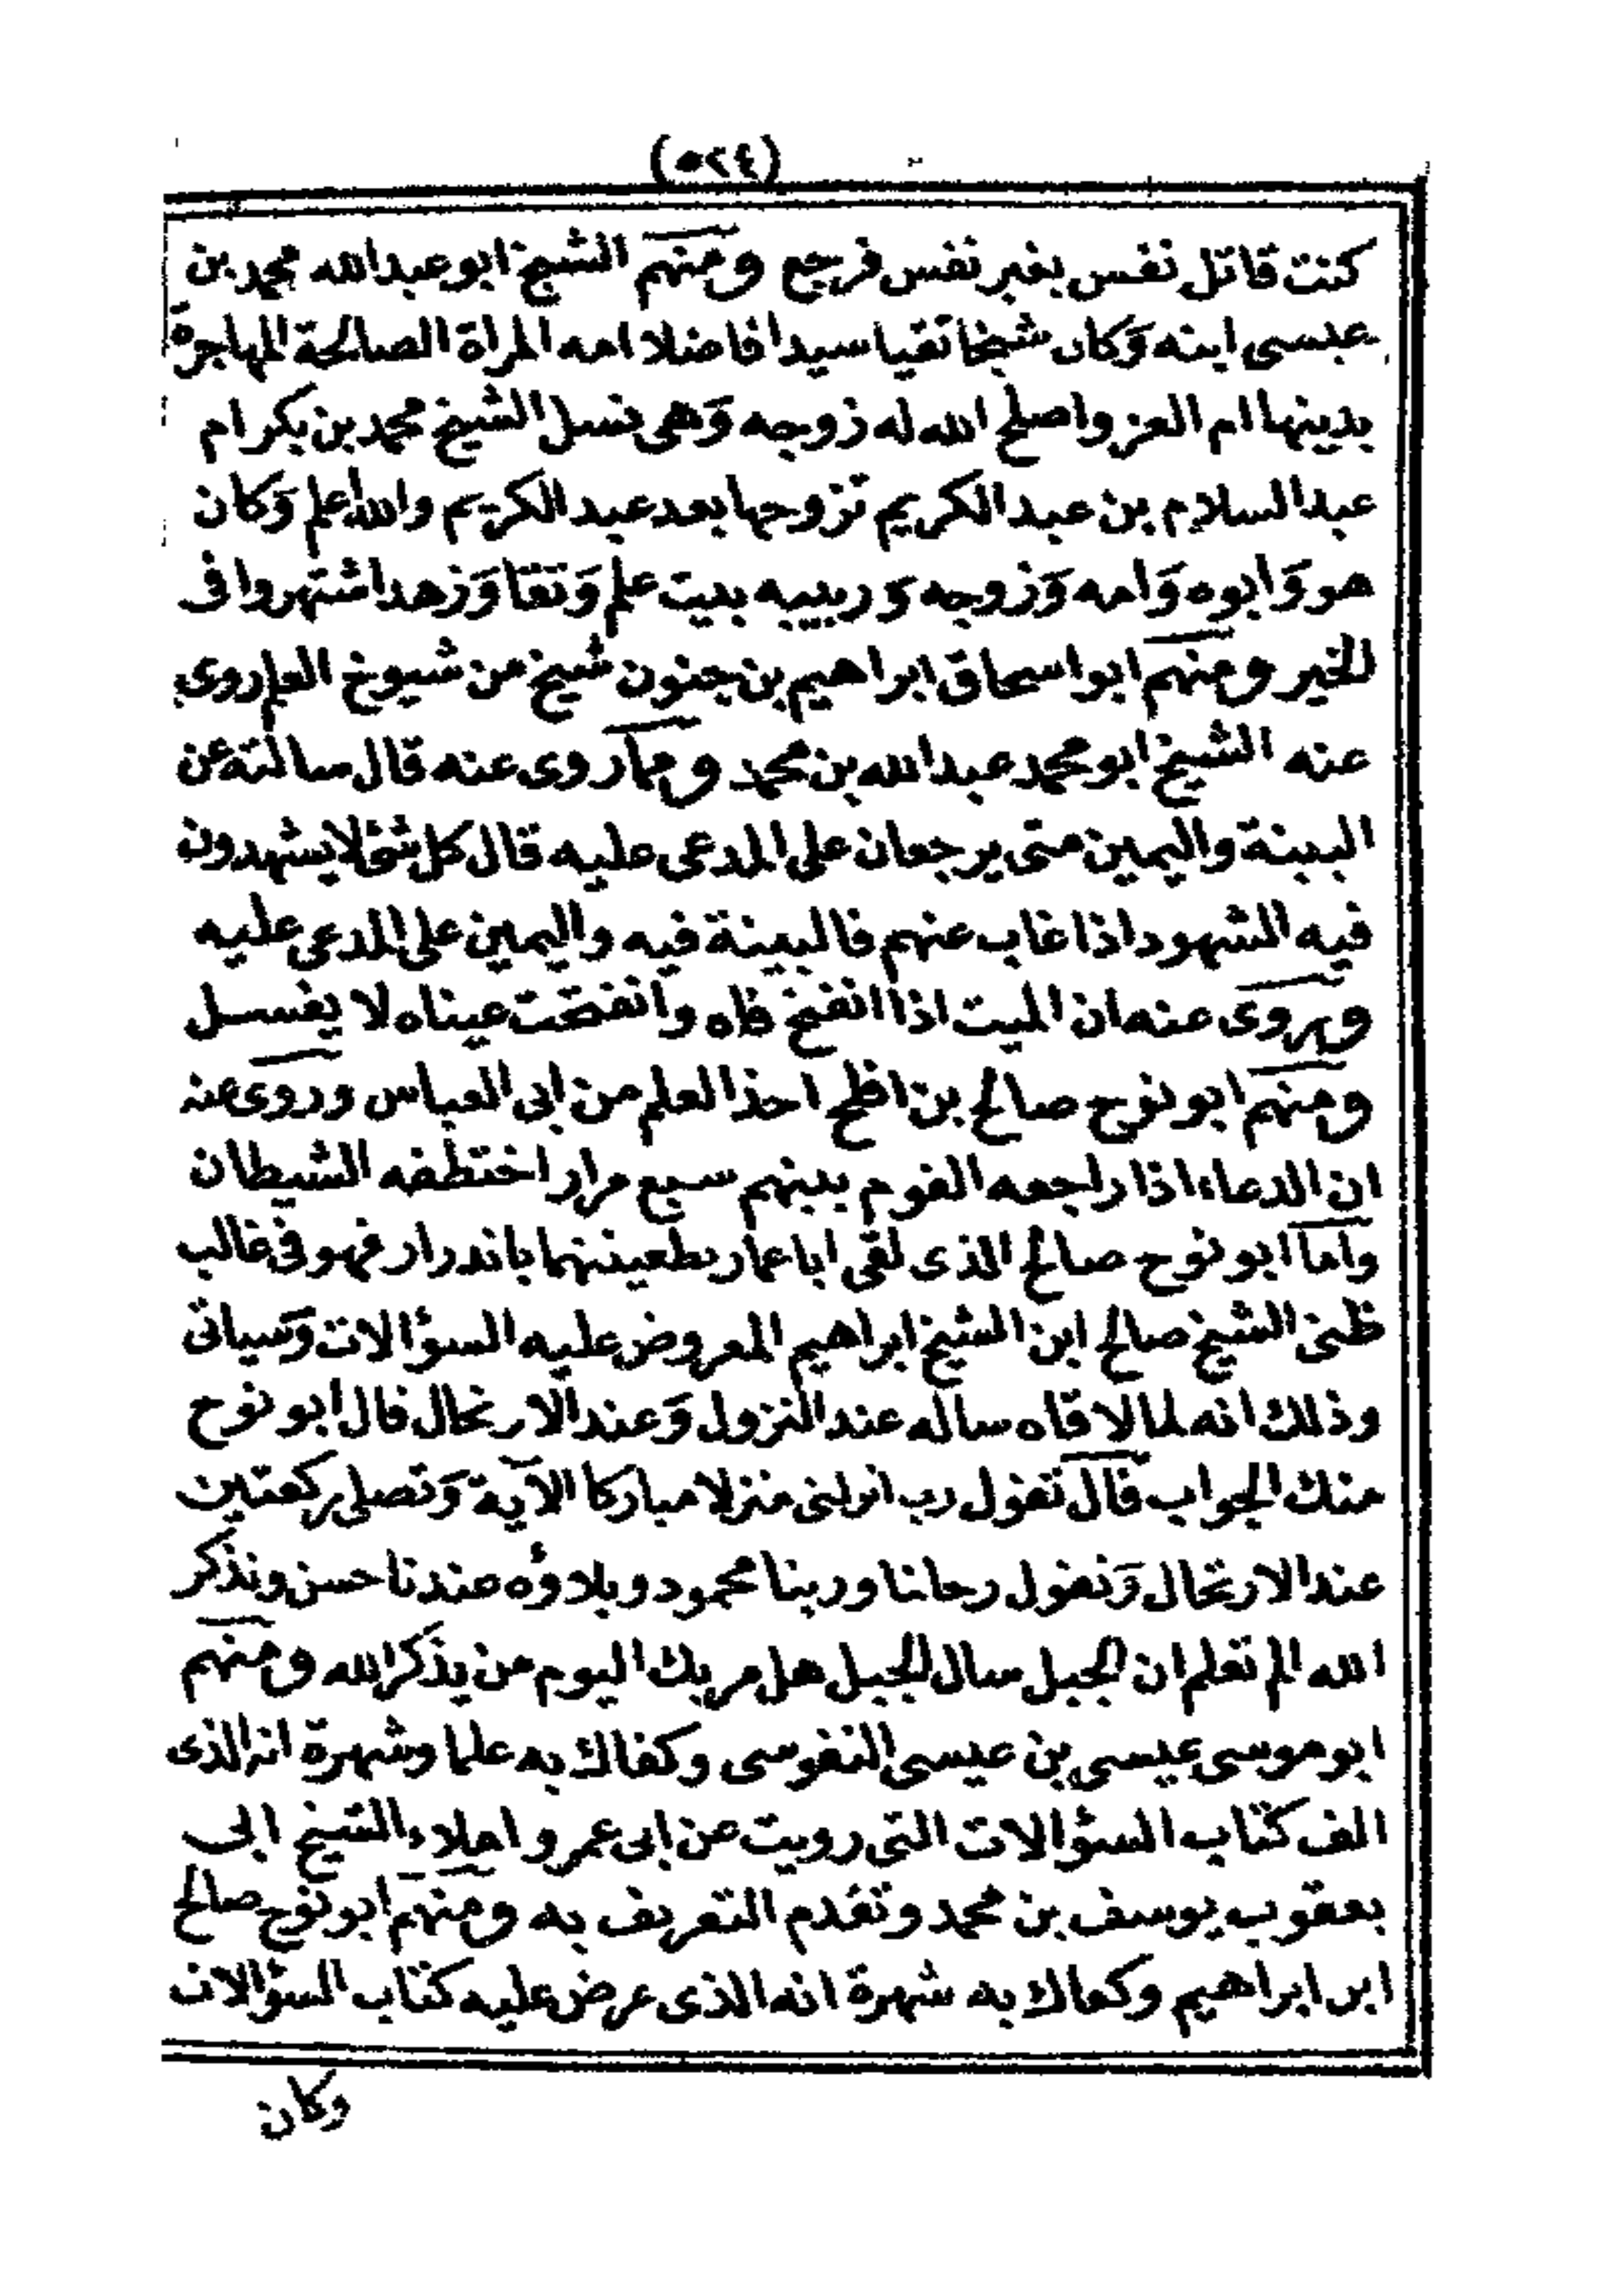 (٥٢٤)
كنت قاتل نفس بغير نفس فرجع ومنهم الشيخ ابو عبد الله محمد بن
عيسى ابنه وَكان شيخا تقيا سيدا فاضلا امه المراة الصالحة المهاجرة
بدينها ام العز واصلح الله له زوجه وَهى نسل الشيخ محمد بن بكر ام
عبد السلام بن عبد الكريم تزوجها بعد عبد الكريم والله اعلم وَكان
هو وَابوه وَامه وَزوجه وربيبه بيت علم وَتقا وَزهد اشتهروا فى
الخير ومنهم ابو اسحاق ابراهيم بن جنون شيخ من شيوخ العلم روى
عنه الشيخ ابو محمد عبد الله بن محمد ومما روى عنه قال سالته عن
البينة واليمين متى يرجعان على المدعى عليه قال كل شئ لا يشهدون
فيه الشهود اذا غاب عنهم فالبينة فيه واليمين على المدعى عليه
ويروى عنه ان الميت اذا انفتح فاه وانفتحت عيناه لا يغسل
ومنهم ابو نوح صالح بن افلح اخذ العلم من ابى العباس وروى عنه
ان الدعاء اذا راجعه القوم بينهم سبع مرار اختطفه الشيطان
واما ابو نوح صالح الذى لقى ابا عمار بطعينتهما باندرار فهو فى غالب
ظنى الشيخ صالح ابن الشيخ ابراهيم المعروض عليه السؤالات وَسياتى
وذلك انه لما لاقاه ساله عند النزول وَعند الارتحال قال ابو نوح
منك الجواب قال تقول رب انزلنى منزلا مباركا الآية وَتصلى ركعتين
عند الارتحال وَتقول رحلنا وربنا محمود وبلاؤه عندنا حسن ونذكر
الله الم تعلم ان الجبل سال الجبل هل مر بك اليوم من يذكر الله ومنهم
ابو موسى عيسى بن عيسى النفوسى وكفاك به علما وشهرة انه الذى
الف كتاب السؤالات التى رويت عن ابى عمرو املاء الشيخ ابى
يعقوب يوسف بن محمد وتقدم التعريف به ومنهم ابو نوح صالح
ابن ابراهيم وكفاك به شهرة انه الذى عرض عليه كتاب السؤالات
وكان